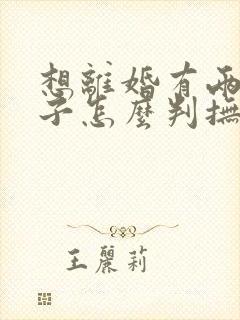 想離婚有兩
子怎麼判撫
王麗莉